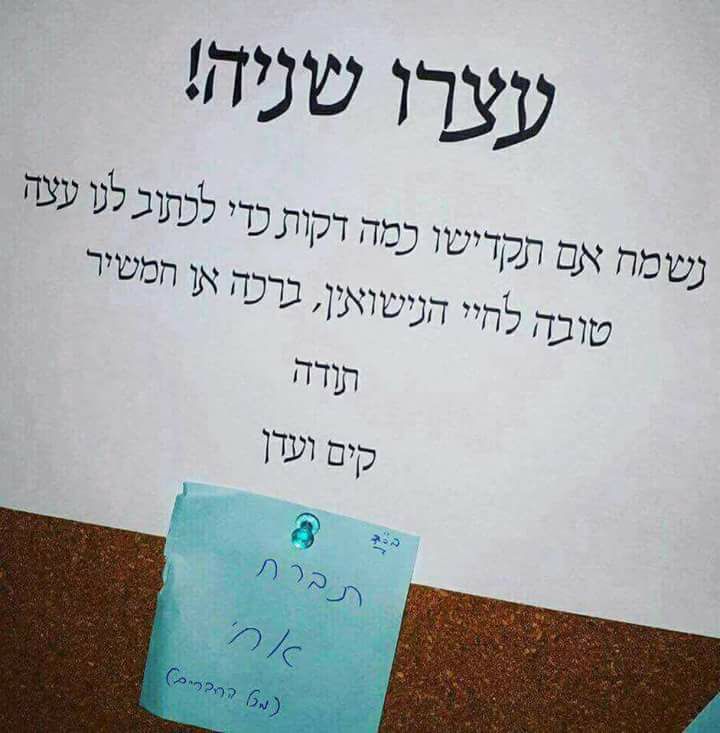 עצרו שניה!
נשמח אם תקדישו כמה דקות כדי לכתוב לנו עצה
טובה לחיי הנישואין, ברכה או חמשיר
תודה
קים ועדן
תברח
אחי
(מט החברים)